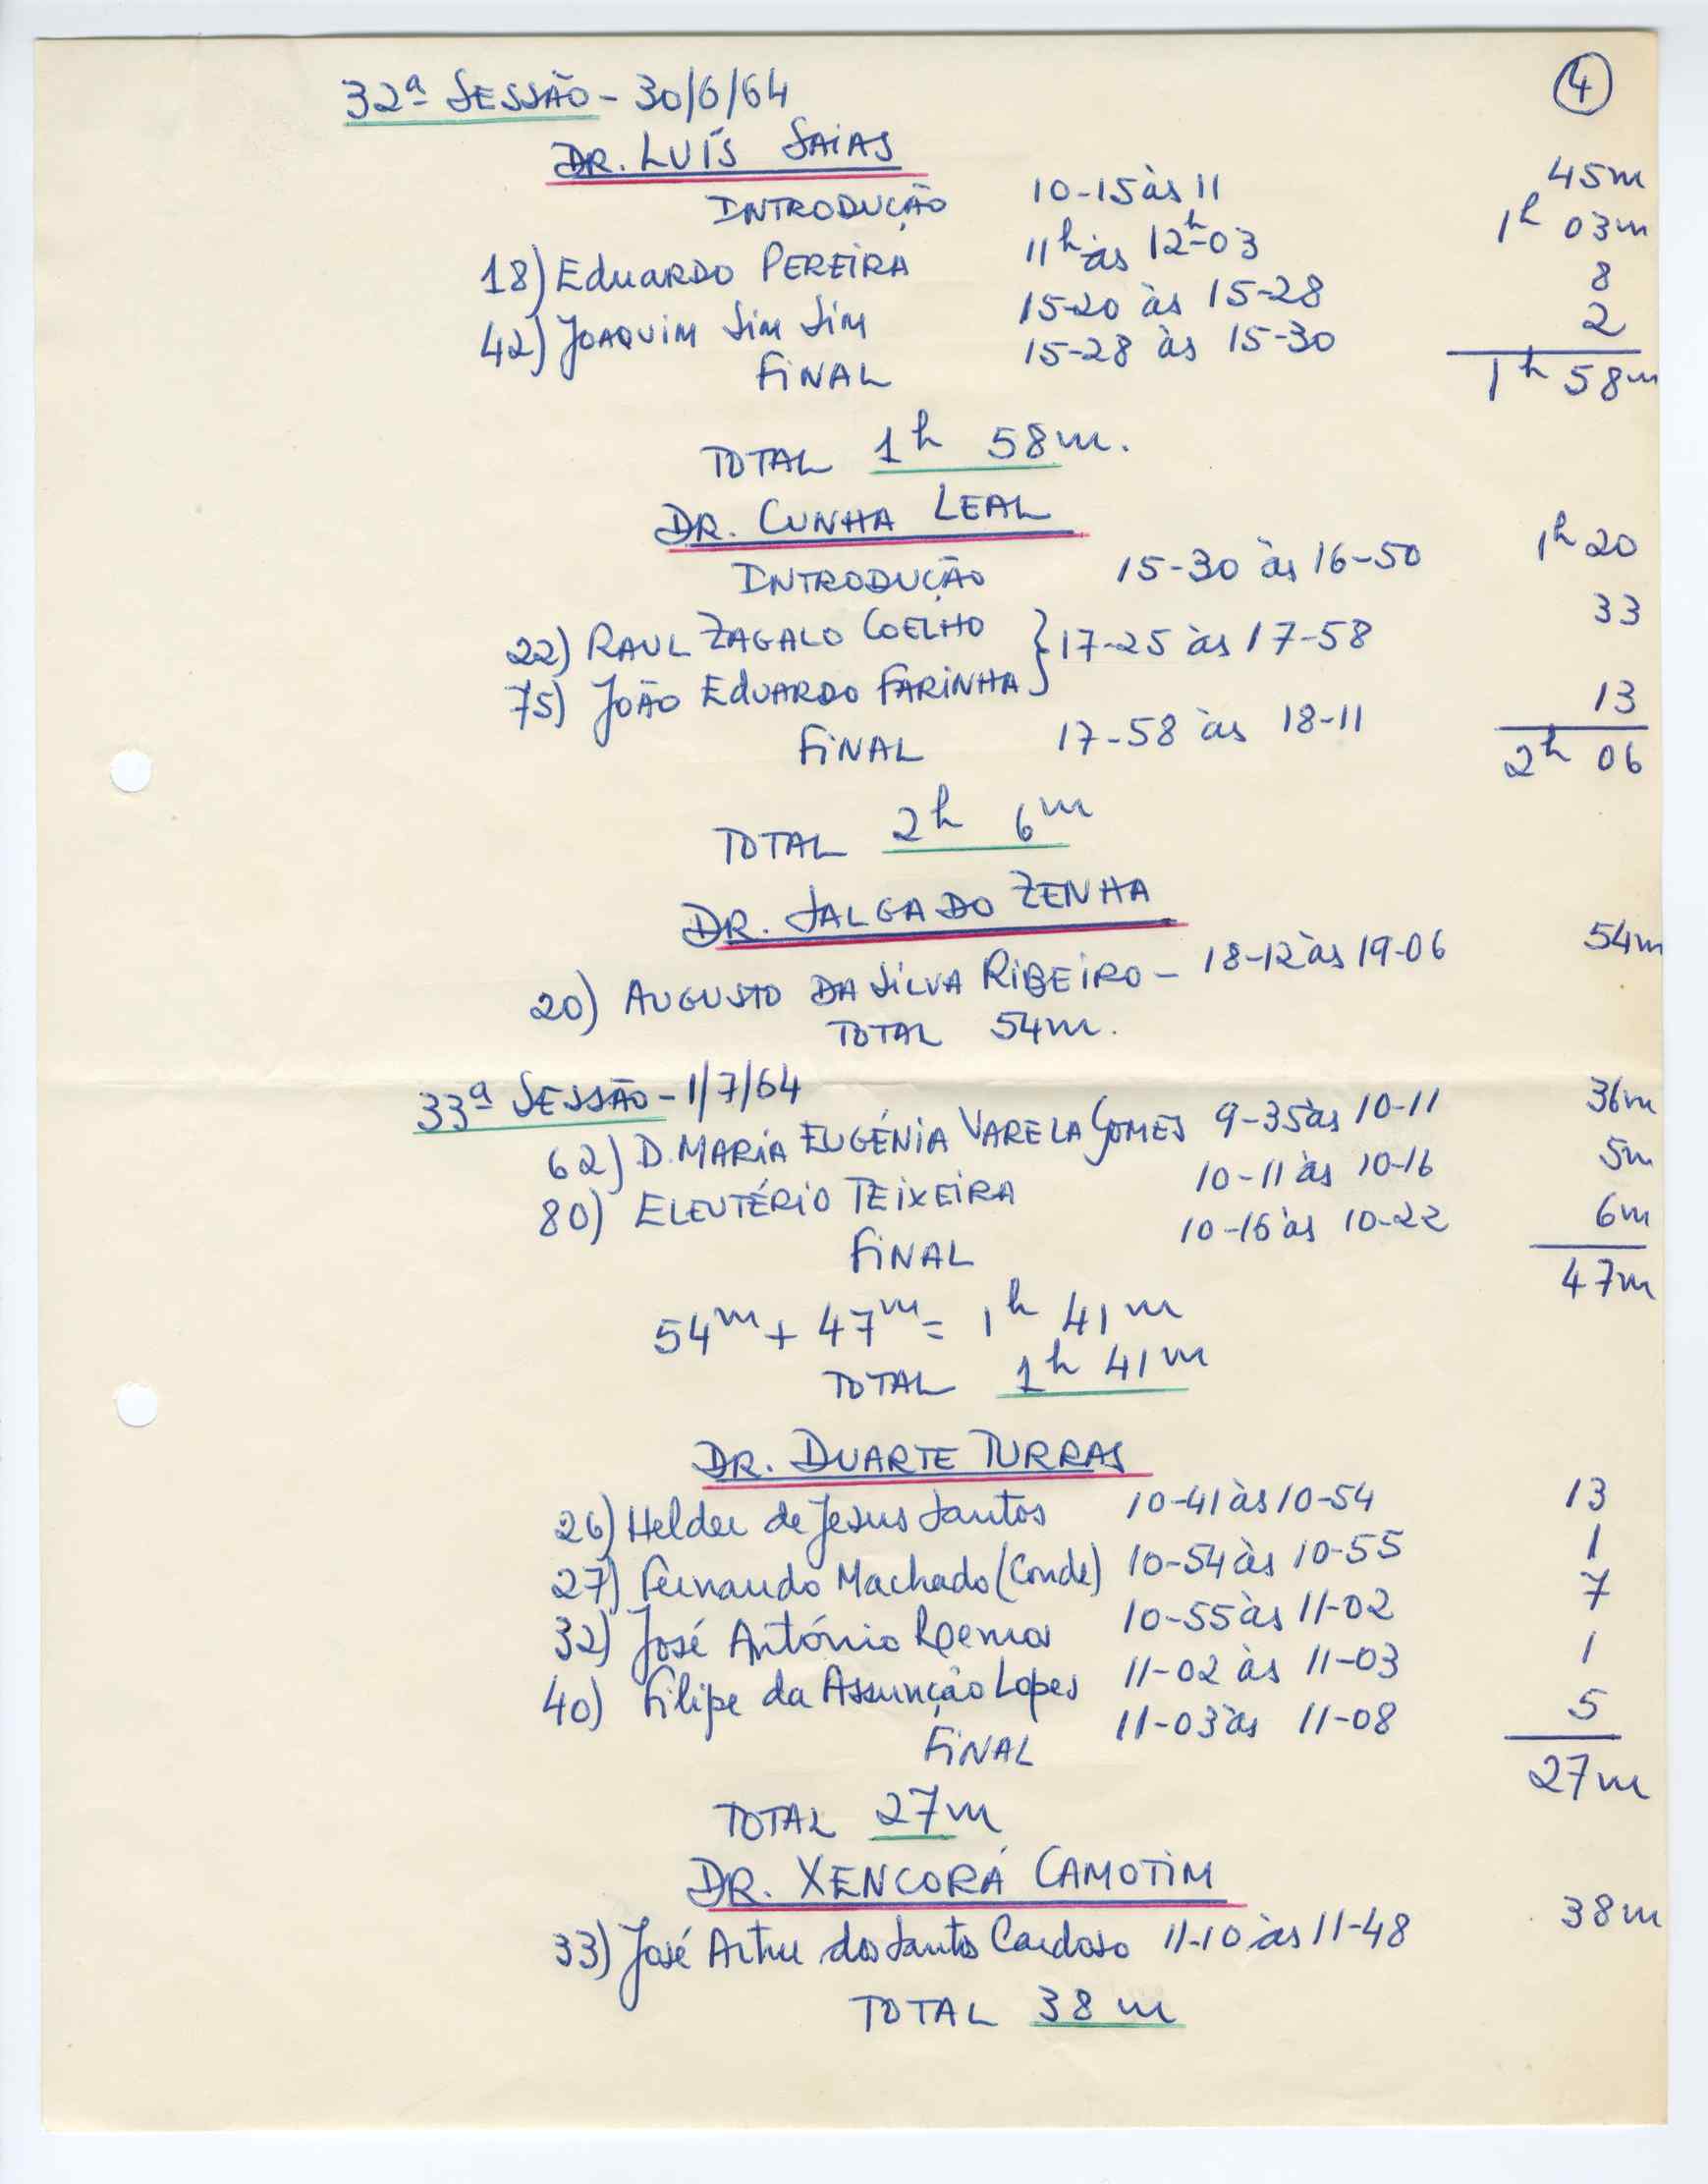 ④
32ª SESSÃO - 30/6/64
DR. LUÍS SAIAS
INTRODUÇÃO 10-15 às 11 45m
18) Eduardo PEREIRA 11h às 12h-03 1h 03m
42) JOAQUIM SIM SIM 15-20 às 15-28 8
FINAL 15-28 às 15-30 2
1h 58m
TOTAL 1h 58m.
DR. CUNHA LEAL
INTRODUÇÃO 15-30 às 16-50 1h 20
22) RAUL ZAGALO COELHO } 17-25 às 17-58 33
75) JOÃO EDUARDO FARINHA
FINAL 17-58 às 18-11 13
2h 06
TOTAL 2h 6m
DR. SALGADO ZENHA
20) AUGUSTO DA SILVA RIBEIRO - 18-12 às 19-06 54m
TOTAL 54m.
33ª SESSÃO - 1/7/64
62) D. MARIA EUGÉNIA VARELA GOMES 9-35 às 10-11 36m
80) ELEUTÉRIO TEIXEIRA 10-11 às 10-16 5m
FINAL 10-16 às 10-22 6m
47m
54m + 47m = 1h 41m
TOTAL 1h 41m
DR. DUARTE TURRAS
26) Helder de Jesus Santos 10-41 às 10-54 13
27) Fernando Machado (Conde) 10-54 às 10-55 1
32) José António 10-55 às 11-02 7
40) Filipe da Assunção Lopes 11-02 às 11-03 1
FINAL 11-03 às 11-08 5
27m
TOTAL 27m
DR. XENCORÁ CAMOTIM
33) José Artur dos Santos Cardoso 11-10 às 11-48 38m
TOTAL 38m